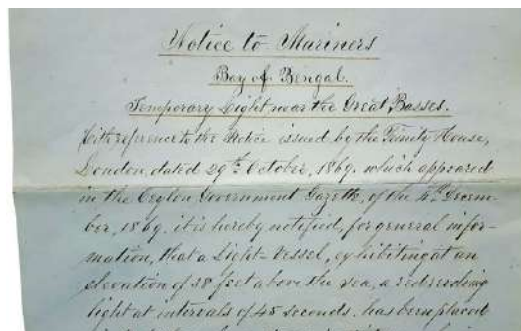 Notice to Mariners
Bay of Bengal.
Temporary Light, near the Great Basses.
With reference to the Notice issued by the Trinity House,
London, dated 29th October, 1869. which appeared
in the Ceylon Government Gazette, of the 4th Decem-
ber, 1869. it is hereby notified, for general infor-
mation, that a Light-Vessel, exhibiting at an
elevation of 38 feet above the sea, a red revolving
light at intervals of 45 seconds. has been placed